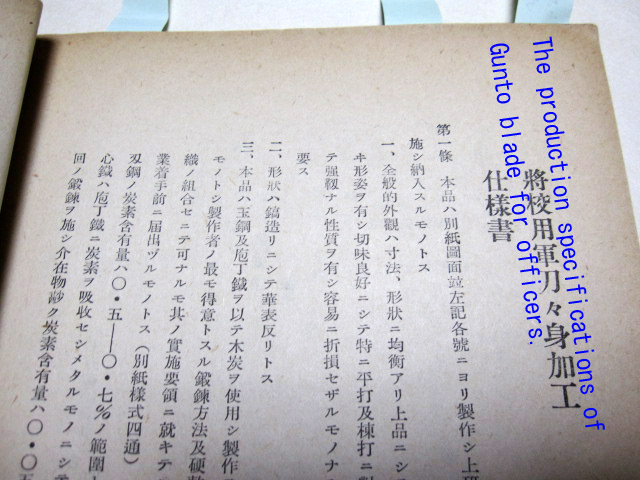 The production specifications of
Gunto blade for officers.
將校用軍刀々身加工
仕樣書
第一條 本品ハ別紙圖面竝左記各號ニヨリ製作シ上
施シ納入スルモノトス
一、全般的外觀ハ寸法、形狀ニ均衡アリ上品ニシ
キ形姿ヲ有シ切味良好ニシテ特ニ平打及棟打ニ對
テ强靱ナル性質ヲ有シ容易ニ折損セザルモノナ
要ス
二、形狀ハ鎬造リニシテ華表反リトス
三、本品ハ玉鋼及庖丁鐵ヲ以テ木炭ヲ使用シ製作
モノトシ製作者ノ最モ得意トスル鍛鍊方法及硬
織ノ組合セニテ可ナルモ其ノ實施要領ニ就キテ
業着手前ニ屆出ヅルモノトス(別紙樣式四通)
刄鋼ノ炭素含有量ハ〇・五―〇・七%ノ範圍
心鐵ハ庖丁鐵ニ炭素ヲ吸收セシメタルモノニシテ
回ノ鍛鍊ヲ施シ介在物尠ク炭素含有量ハ〇・〇五